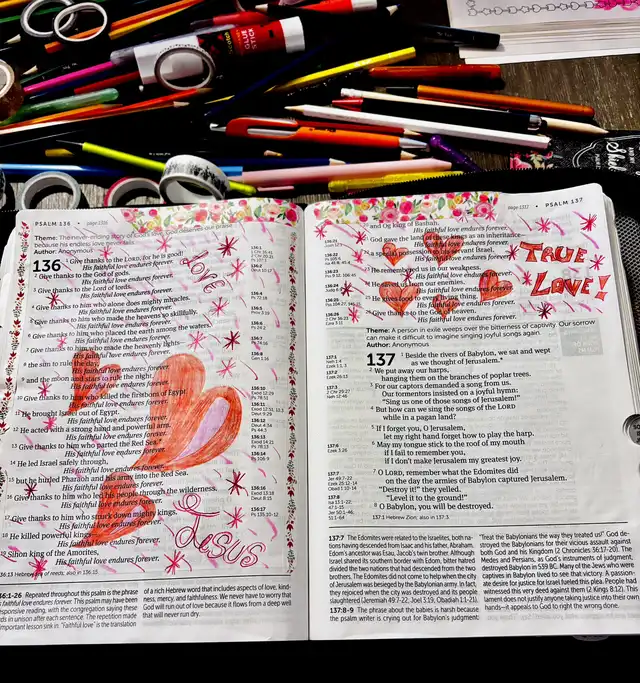 GLUE
STICK
PSALM 136 • page 1316
Theme: The never-ending story of God's love. God deserves our praise
because his endless love never fails.
Author: Anonymous
136 1 Give thanks to the LORD, for he is good!
His faithful love endures forever.
2 Give thanks to the God of gods.
His faithful love endures forever.
3 Give thanks to the Lord of lords.
His faithful love endures forever.
4 Give thanks to him who alone does mighty miracles.
His faithful love endures forever.
5 Give thanks to him who made the heavens so skillfully.
His faithful love endures forever.
6 Give thanks to him who placed the earth among the waters.
His faithful love endures forever.
7 Give thanks to him who made the heavenly lights—
His faithful love endures forever.
8 the sun to rule the day,
His faithful love endures forever.
9 and the moon and stars to rule the night.
His faithful love endures forever.
10 Give thanks to him who killed the firstborn of Egypt.
His faithful love endures forever.
11 He brought Israel out of Egypt.
His faithful love endures forever.
12 He acted with a strong hand and powerful arm.
His faithful love endures forever.
13 Give thanks to him who parted the Red Sea.
His faithful love endures forever.
14 He led Israel safely through,
His faithful love endures forever.
15 but he hurled Pharaoh and his army into the Red Sea.
His faithful love endures forever.
16 Give thanks to him who led his people through the wilderness.
His faithful love endures forever.
17 Give thanks to him who struck down mighty kings.
His faithful love endures forever.
18 He killed powerful kings—
His faithful love endures forever.
19 Sihon king of the Amorites,
His faithful love endures forever.
love
Jesus
136:1-26 Repeated throughout this psalm is the phrase
faithful love endures forever. This psalm may have been
responsive reading, with the congregation saying these
words in unison after each sentence. The repetition made
important lesson sink in. "Faithful love" is the translation
of a rich Hebrew word that includes aspects of love, kind-
ness, mercy, and faithfulness. We never have to worry that
God will run out of love because it flows from a deep well
that will never run dry.
page 1317 • PSALM 137
and Og king of Bashan.
His faithful love endures forever.
God gave the land of these kings as an inheritance—
His faithful love endures forever.
a special possession to his servant Israel.
His faithful love endures forever.
He remembered us in our weakness.
His faithful love endures forever.
He saved us from our enemies.
His faithful love endures forever.
He gives food to every living thing.
His faithful love endures forever.
Give thanks to the God of heaven.
His faithful love endures forever.
TRUE
LOVE!
Theme: A person in exile weeps over the bitterness of captivity. Our sorrow
can make it difficult to imagine singing joyful songs again.
Author: Anonymous
137 1 Beside the rivers of Babylon, we sat and wept
as we thought of Jerusalem.
2 We put away our harps,
hanging them on the branches of poplar trees.
3 For our captors demanded a song from us.
Our tormentors insisted on a joyful hymn:
"Sing us one of those songs of Jerusalem!"
4 But how can we sing the songs of the LORD
while in a pagan land?
5 If I forget you, O Jerusalem,
let my right hand forget how to play the harp.
6 May my tongue stick to the roof of my mouth
if I fail to remember you,
if I don't make Jerusalem my greatest joy.
7 O LORD, remember what the Edomites did
on the day the armies of Babylon captured Jerusalem.
"Destroy it!" they yelled.
"Level it to the ground!"
8 O Babylon, you will be destroyed.
137:1 Hebrew Zion; also in 137:3.
137:7 The Edomites were related to the Israelites, both na-
tions having descended from Isaac and his father, Abraham.
Edom's ancestor was Esau, Jacob's twin brother. Although
Israel shared its southern border with Edom, bitter hatred
divided the two nations that had descended from the two
brothers. The Edomites did not come to help when the city
of Jerusalem was besieged by the Babylonian army. In fact,
they rejoiced when the city was destroyed and its people
slaughtered (Jeremiah 49:7-22; Joel 3:19; Obadiah 1:1-21).
137:8-9 The phrase about the babies is harsh because
the psalm writer is crying out for Babylon's judgment:
"Treat the Babylonians the way they treated us!" God de-
stroyed the Babylonians for their vicious assault against
both God and his Kingdom (2 Chronicles 36:17-20). The
Medes and Persians, as God's instruments of judgment,
destroyed Babylon in 539 BC. Many of the Jews who were
captives in Babylon lived to see that victory. A passion-
ate desire for justice for Israel fueled this plea. People had
witnessed this very deed against them (2 Kings 8:12). This
lament does not justify anyone taking justice into their own
hands—it appeals to God to right the wrong done.